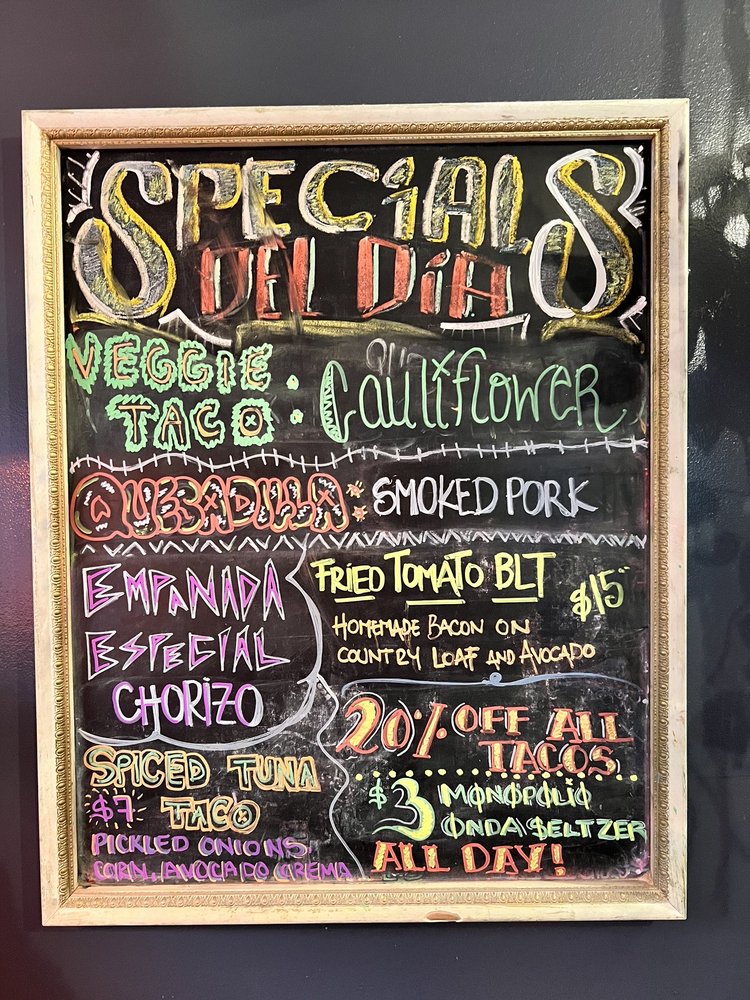 SPECiALS
DEL DiA
VEGGIE
TACO : CauliflowER
QUESADILLA: SMOKED PORK
EMPANADA
ESPECIAL
CHORIZO
FRIED TOMATO BLT
$15
HOMEMADE BACON ON
COUNTRY LOAF AND AVOCADO
SPICED TUNA
$7 TACO
PICKLED ONIONS
CORN, AVOCADO CREMA
20% OFF ALL
TACOS
$3 MONOPOLIO
ONDA SELTZER
ALL DAY!